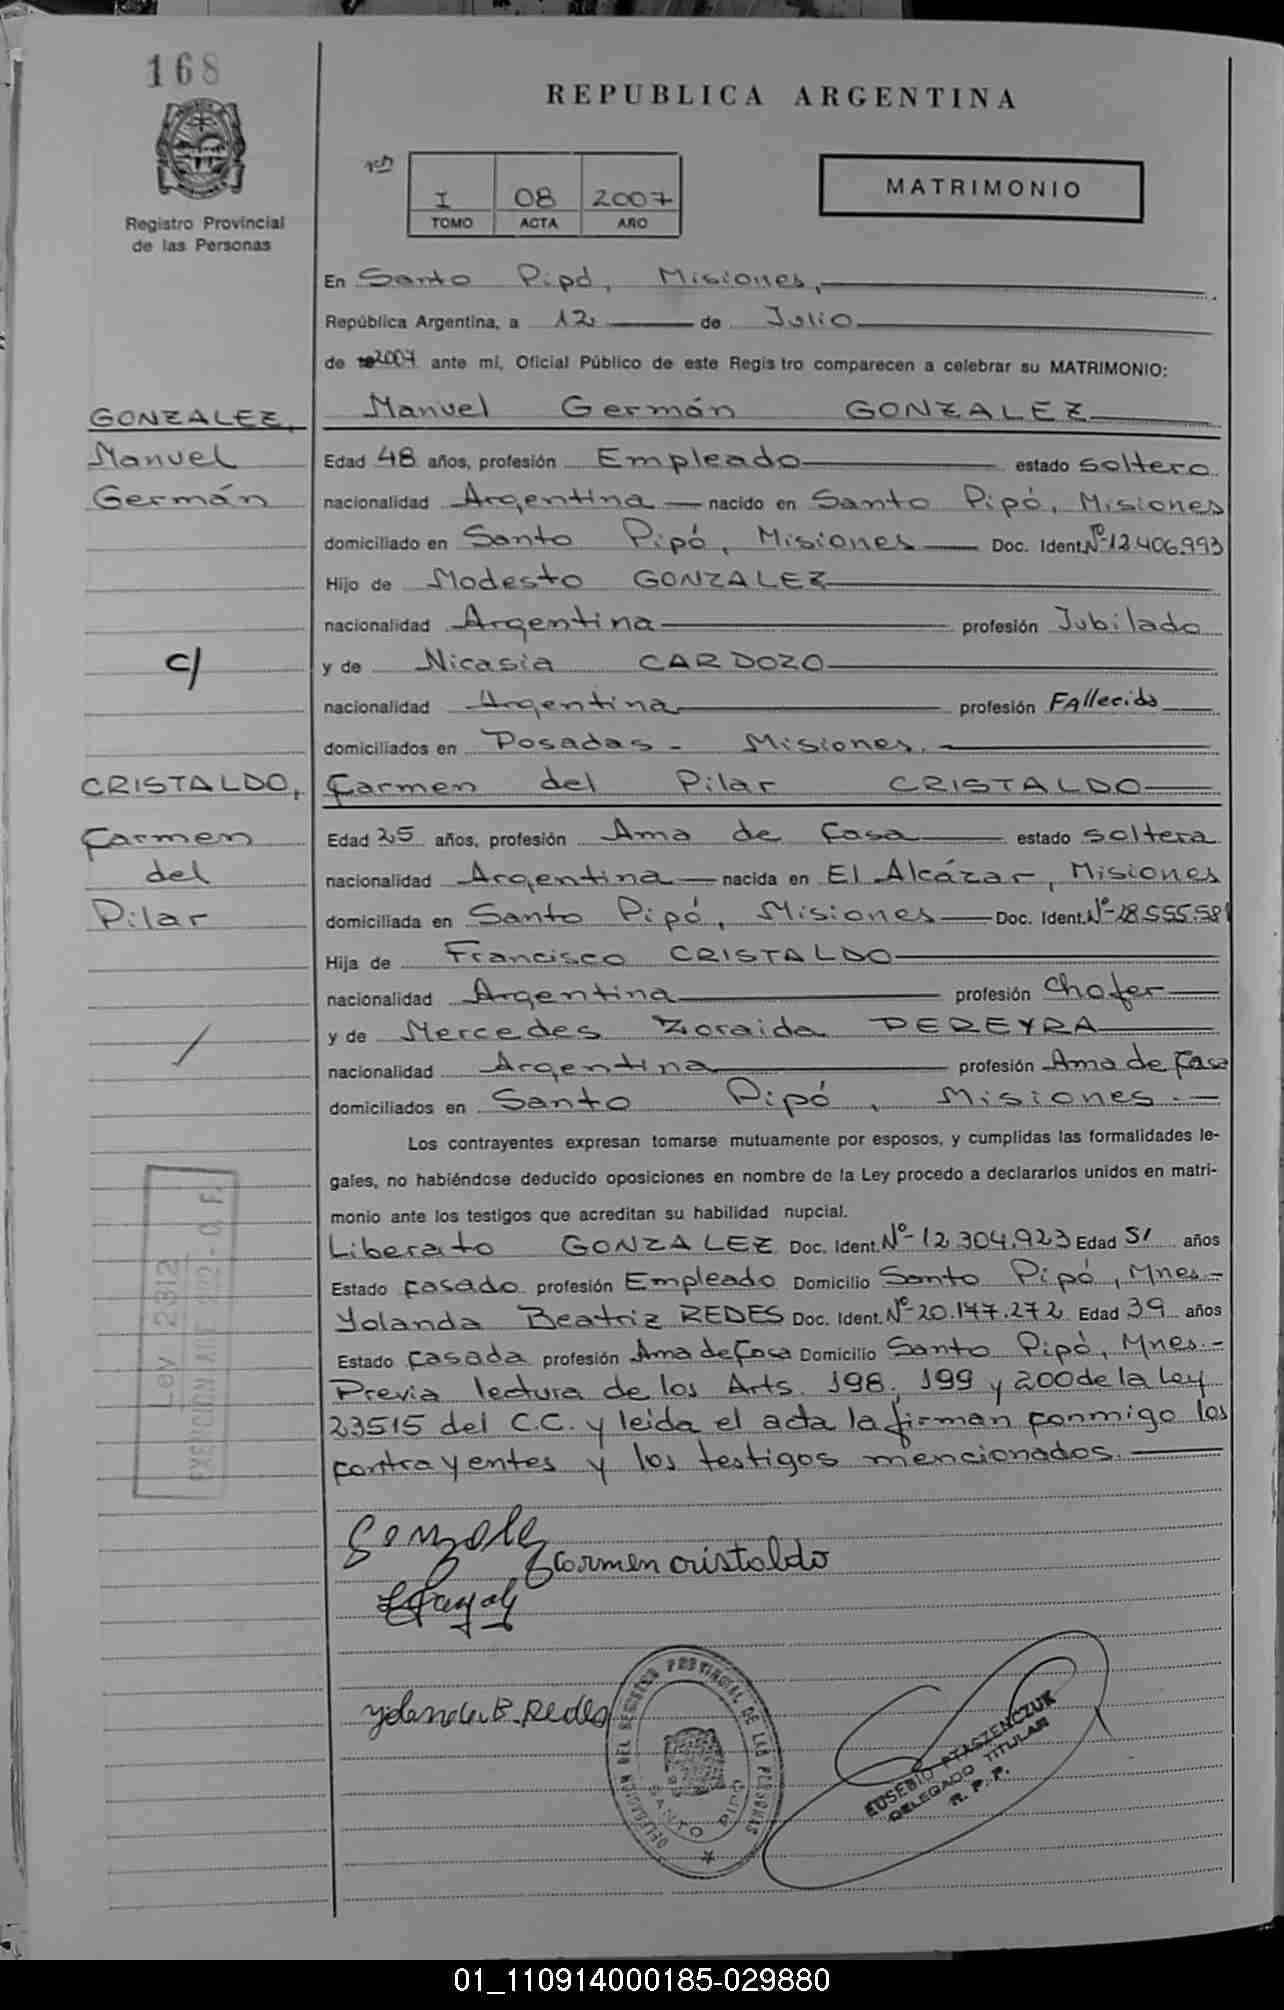 168
REPUBLICA ARGENTINA
Registro Provincial
de las Personas
I 08 2007
TOMO ACTA AÑO
MATRIMONIO
En Santo Pipó, Misiones,
República Argentina, a 12 de Julio
de 2007 ante mí, Oficial Público de este Registro comparecen a celebrar su MATRIMONIO:
GONZALEZ,
Manuel
Germán
c/
CRISTALDO,
Carmen
del
Pilar
Manuel Germán GONZALEZ
Edad 48 años, profesión Empleado estado soltero
nacionalidad Argentina nacido en Santo Pipó, Misiones
domiciliado en Santo Pipó, Misiones Doc. Ident. Nº 12.406.993
Hijo de Modesto GONZALEZ
nacionalidad Argentina profesión Jubilado
y de Nicasia CARDOZO
nacionalidad Argentina profesión Fallecida
domiciliados en Posadas - Misiones.
Carmen del Pilar CRISTALDO
Edad 25 años, profesión Ama de Casa estado soltera
nacionalidad Argentina nacida en El Alcázar, Misiones
domiciliada en Santo Pipó, Misiones Doc. Ident. Nº 28.555.581
Hija de Francisco CRISTALDO
nacionalidad Argentina profesión Chofer
y de Mercedes Zoraida PEREYRA
nacionalidad Argentina profesión Ama de Casa
domiciliados en Santo Pipó, Misiones.-
Los contrayentes expresan tomarse mutuamente por esposos, y cumplidas las formalidades le-
gales, no habiéndose deducido oposiciones en nombre de la Ley procedo a declararlos unidos en matri-
monio ante los testigos que acreditan su habilidad nupcial.
Liberato GONZALEZ Doc. Ident. Nº 12.304.923 Edad 51 años
Estado casado profesión Empleado Domicilio Santo Pipó, Mnes.-
Yolanda Beatriz REDES Doc. Ident. Nº 20.147.272 Edad 39 años
Estado casada profesión Ama de Casa Domicilio Santo Pipó, Mnes.-
Previa lectura de los Arts. 198, 199 y 200 de la Ley
23515 del C.C. y leída el acta la firman conmigo los
contrayentes y los testigos mencionados.
Ley 2312
Gonzalez
Carmen Cristaldo
Yolanda B. Redes
DELEGACION DEL REGISTRO PROVINCIAL DE LAS PERSONAS
SANTO PIPO
EUSEBIO PTASZENCZUK
DELEGADO TITULAR
R. P. P.
01_110914000185-029880